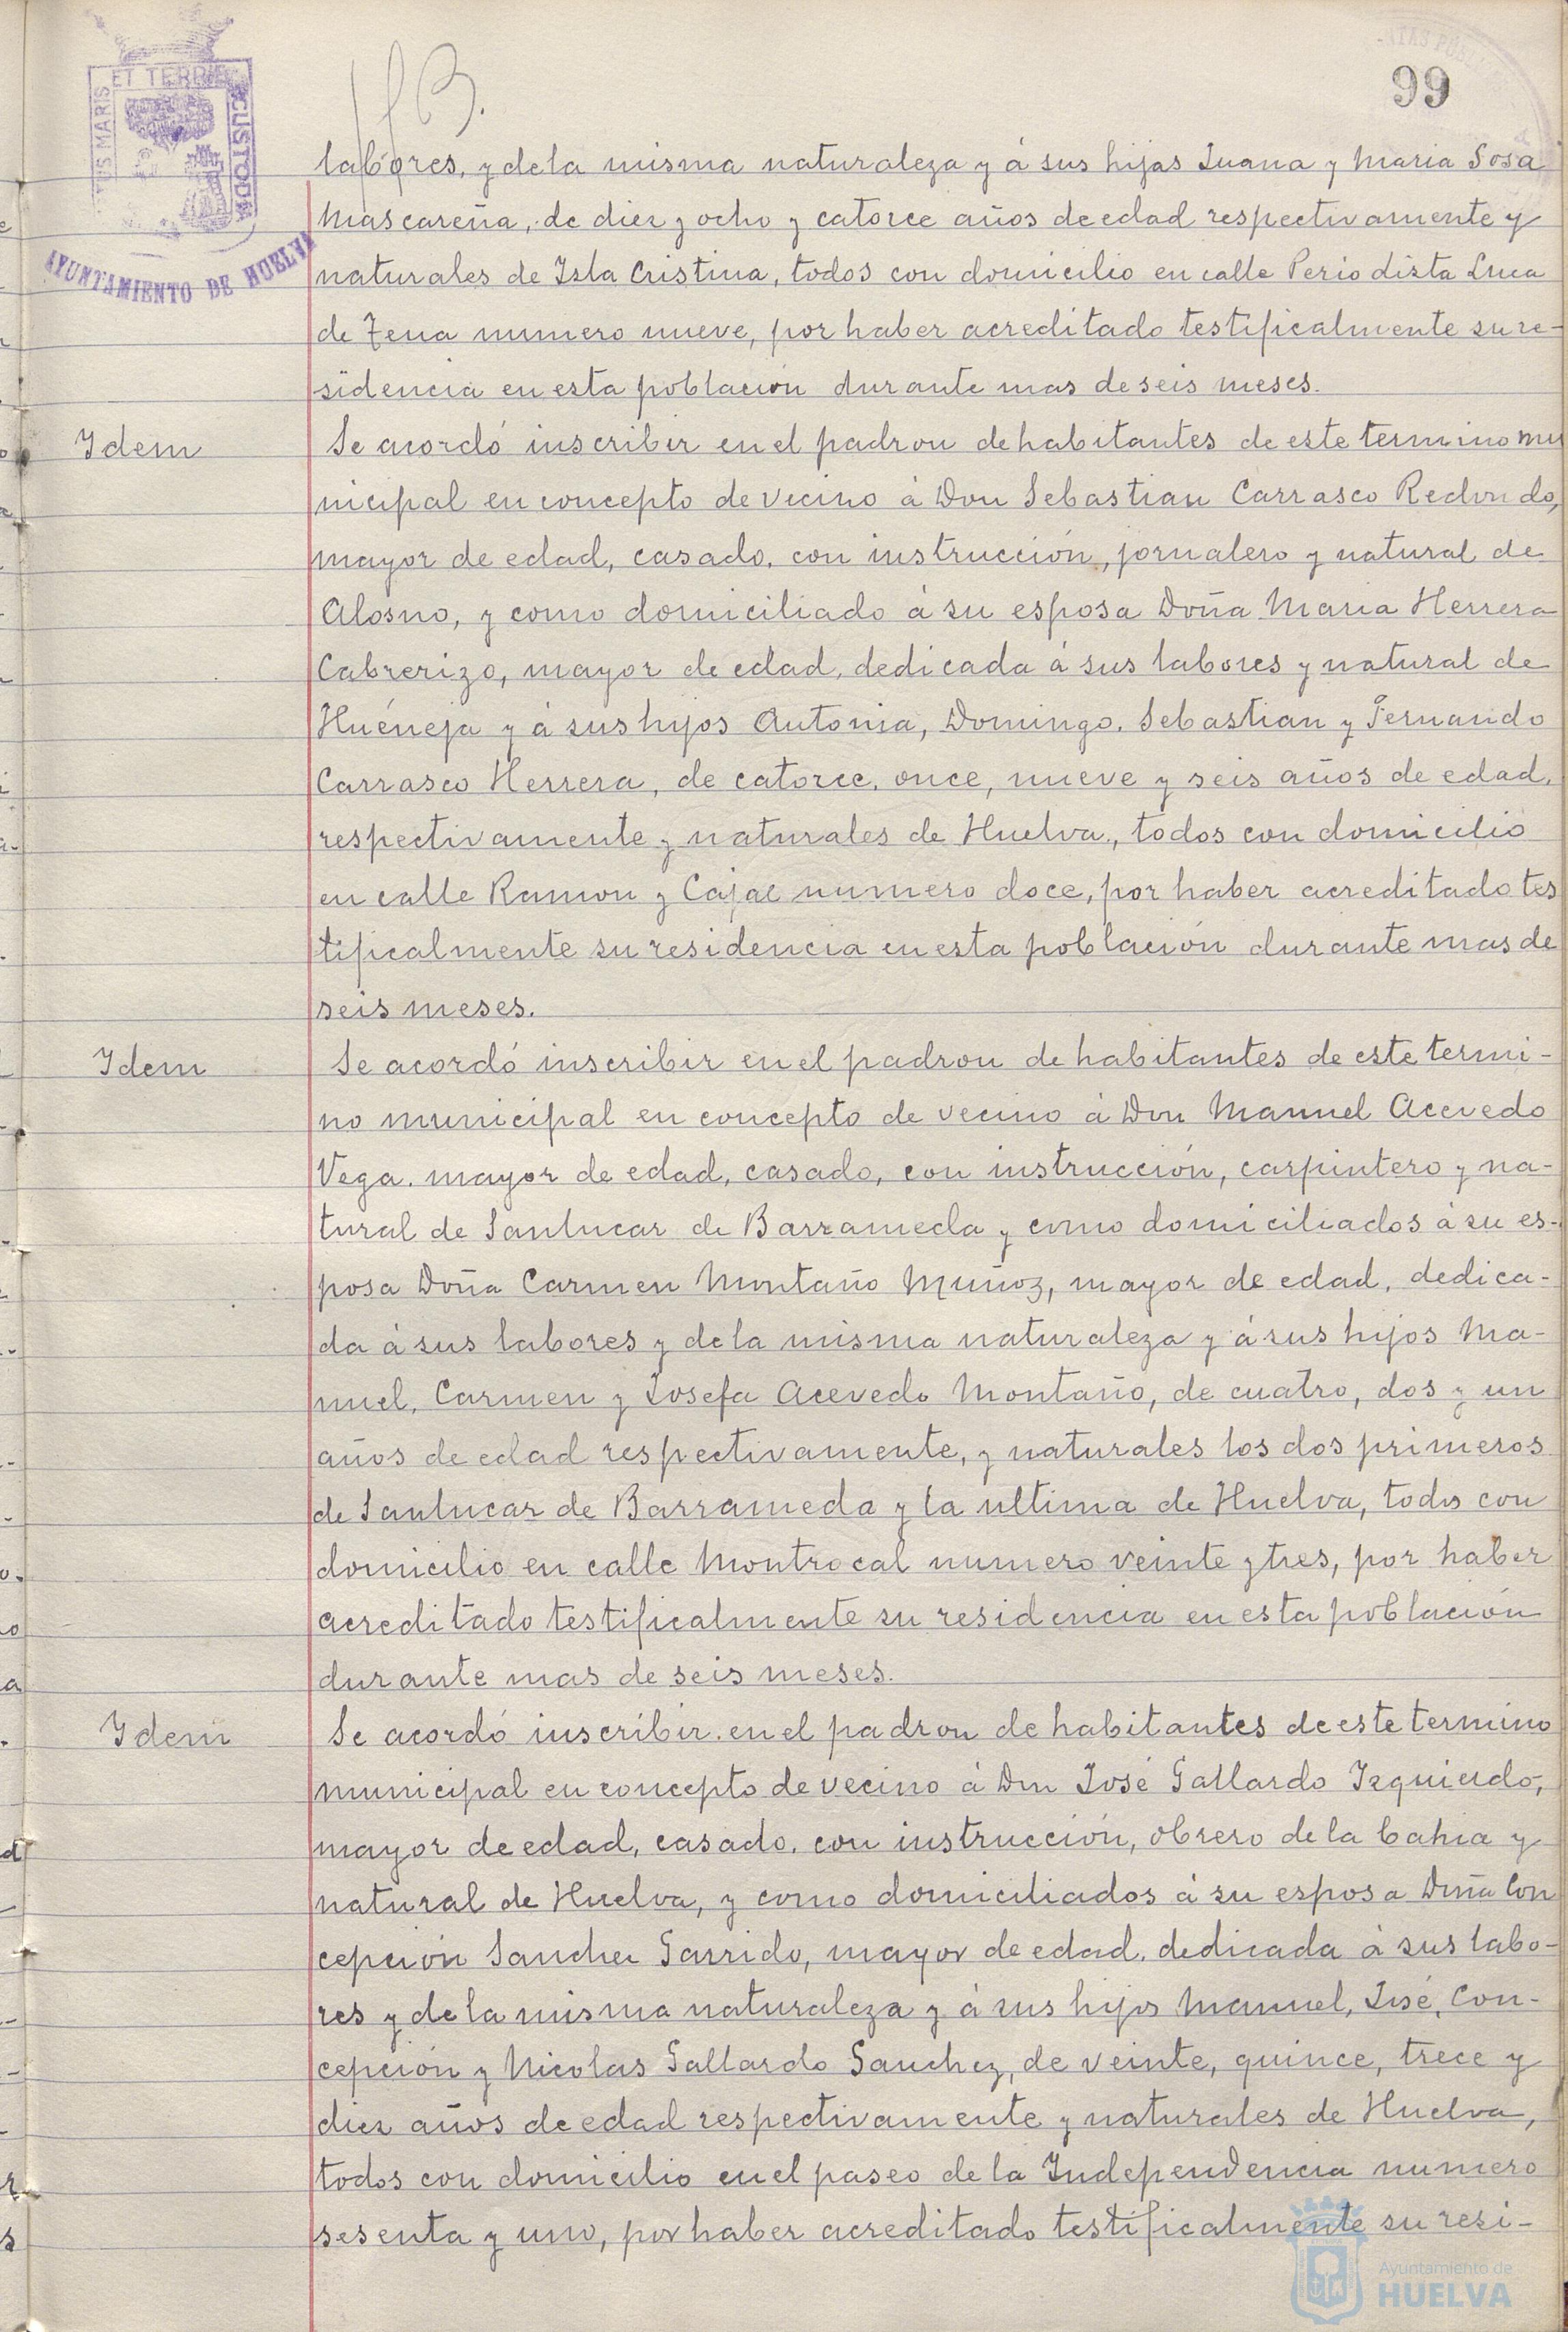 99
PORTUS MARIS ET TERRE CUSTODIA
AYUNTAMIENTO DE HUELVA
labores, y de la misma naturaleza y á sus hijas Juana y Maria Sosa
Mascareña, de diez y ocho y catorce años de edad respectivamente y
naturales de Isla Cristina, todos con domicilio en calle Periodista Luca
de Tena numero nueve, por haber acreditado testificalmente su re-
sidencia en esta población durante mas de seis meses.
Idem
Se acordó inscribir en el padron de habitantes de este termino mu
nicipal en concepto de vecino á Don Sebastian Carrasco Redondo,
mayor de edad, casado, con instrucción, jornalero y natural de
Alosno, y como domiciliado á su esposa Doña Maria Herrera
Cabrerizo, mayor de edad, dedicada á sus labores y natural de
Huéneja y á sus hijos Antonia, Domingo, Sebastian y Fernando
Carrasco Herrera, de catorce, once, nueve y seis años de edad,
respectivamente y naturales de Huelva, todos con domicilio
en calle Ramon y Cajal numero doce, por haber acreditado tes
tificalmente su residencia en esta población durante mas de
seis meses.
Idem
Se acordó inscribir en el padron de habitantes de este termi-
no municipal en concepto de vecino á Don Manuel Acevedo
Vega, mayor de edad, casado, con instrucción, carpintero y na-
tural de Sanlucar de Barrameda y como domiciliados á su es-
posa Doña Carmen Montaño Muñoz, mayor de edad, dedica-
da á sus labores y de la misma naturaleza y á sus hijos Ma-
nuel, Carmen y Josefa Acevedo Montaño, de cuatro, dos y un
años de edad respectivamente, y naturales los dos primeros
de Sanlucar de Barrameda y la ultima de Huelva, todos con
domicilio en calle Montrocal numero veinte y tres, por haber
acreditado testificalmente su residencia en esta población
durante mas de seis meses.
Idem
Se acordó inscribir en el padron de habitantes de este termino
municipal en concepto de vecino á Don José Gallardo Izquierdo,
mayor de edad, casado, con instrucción, obrero de la bahia y
natural de Huelva, y como domiciliados á su esposa Doña Con
cepción Sanchez Garrido, mayor de edad, dedicada á sus labo-
res y de la misma naturaleza y á sus hijos Manuel, José, Con-
cepción y Nicolas Gallardo Sanchez, de veinte, quince, trece y
diez años de edad respectivamente y naturales de Huelva,
todos con domicilio en el paseo de la Independencia numero
sesenta y uno, por haber acreditado testificalmente su resi-
Ayuntamiento de
HUELVA